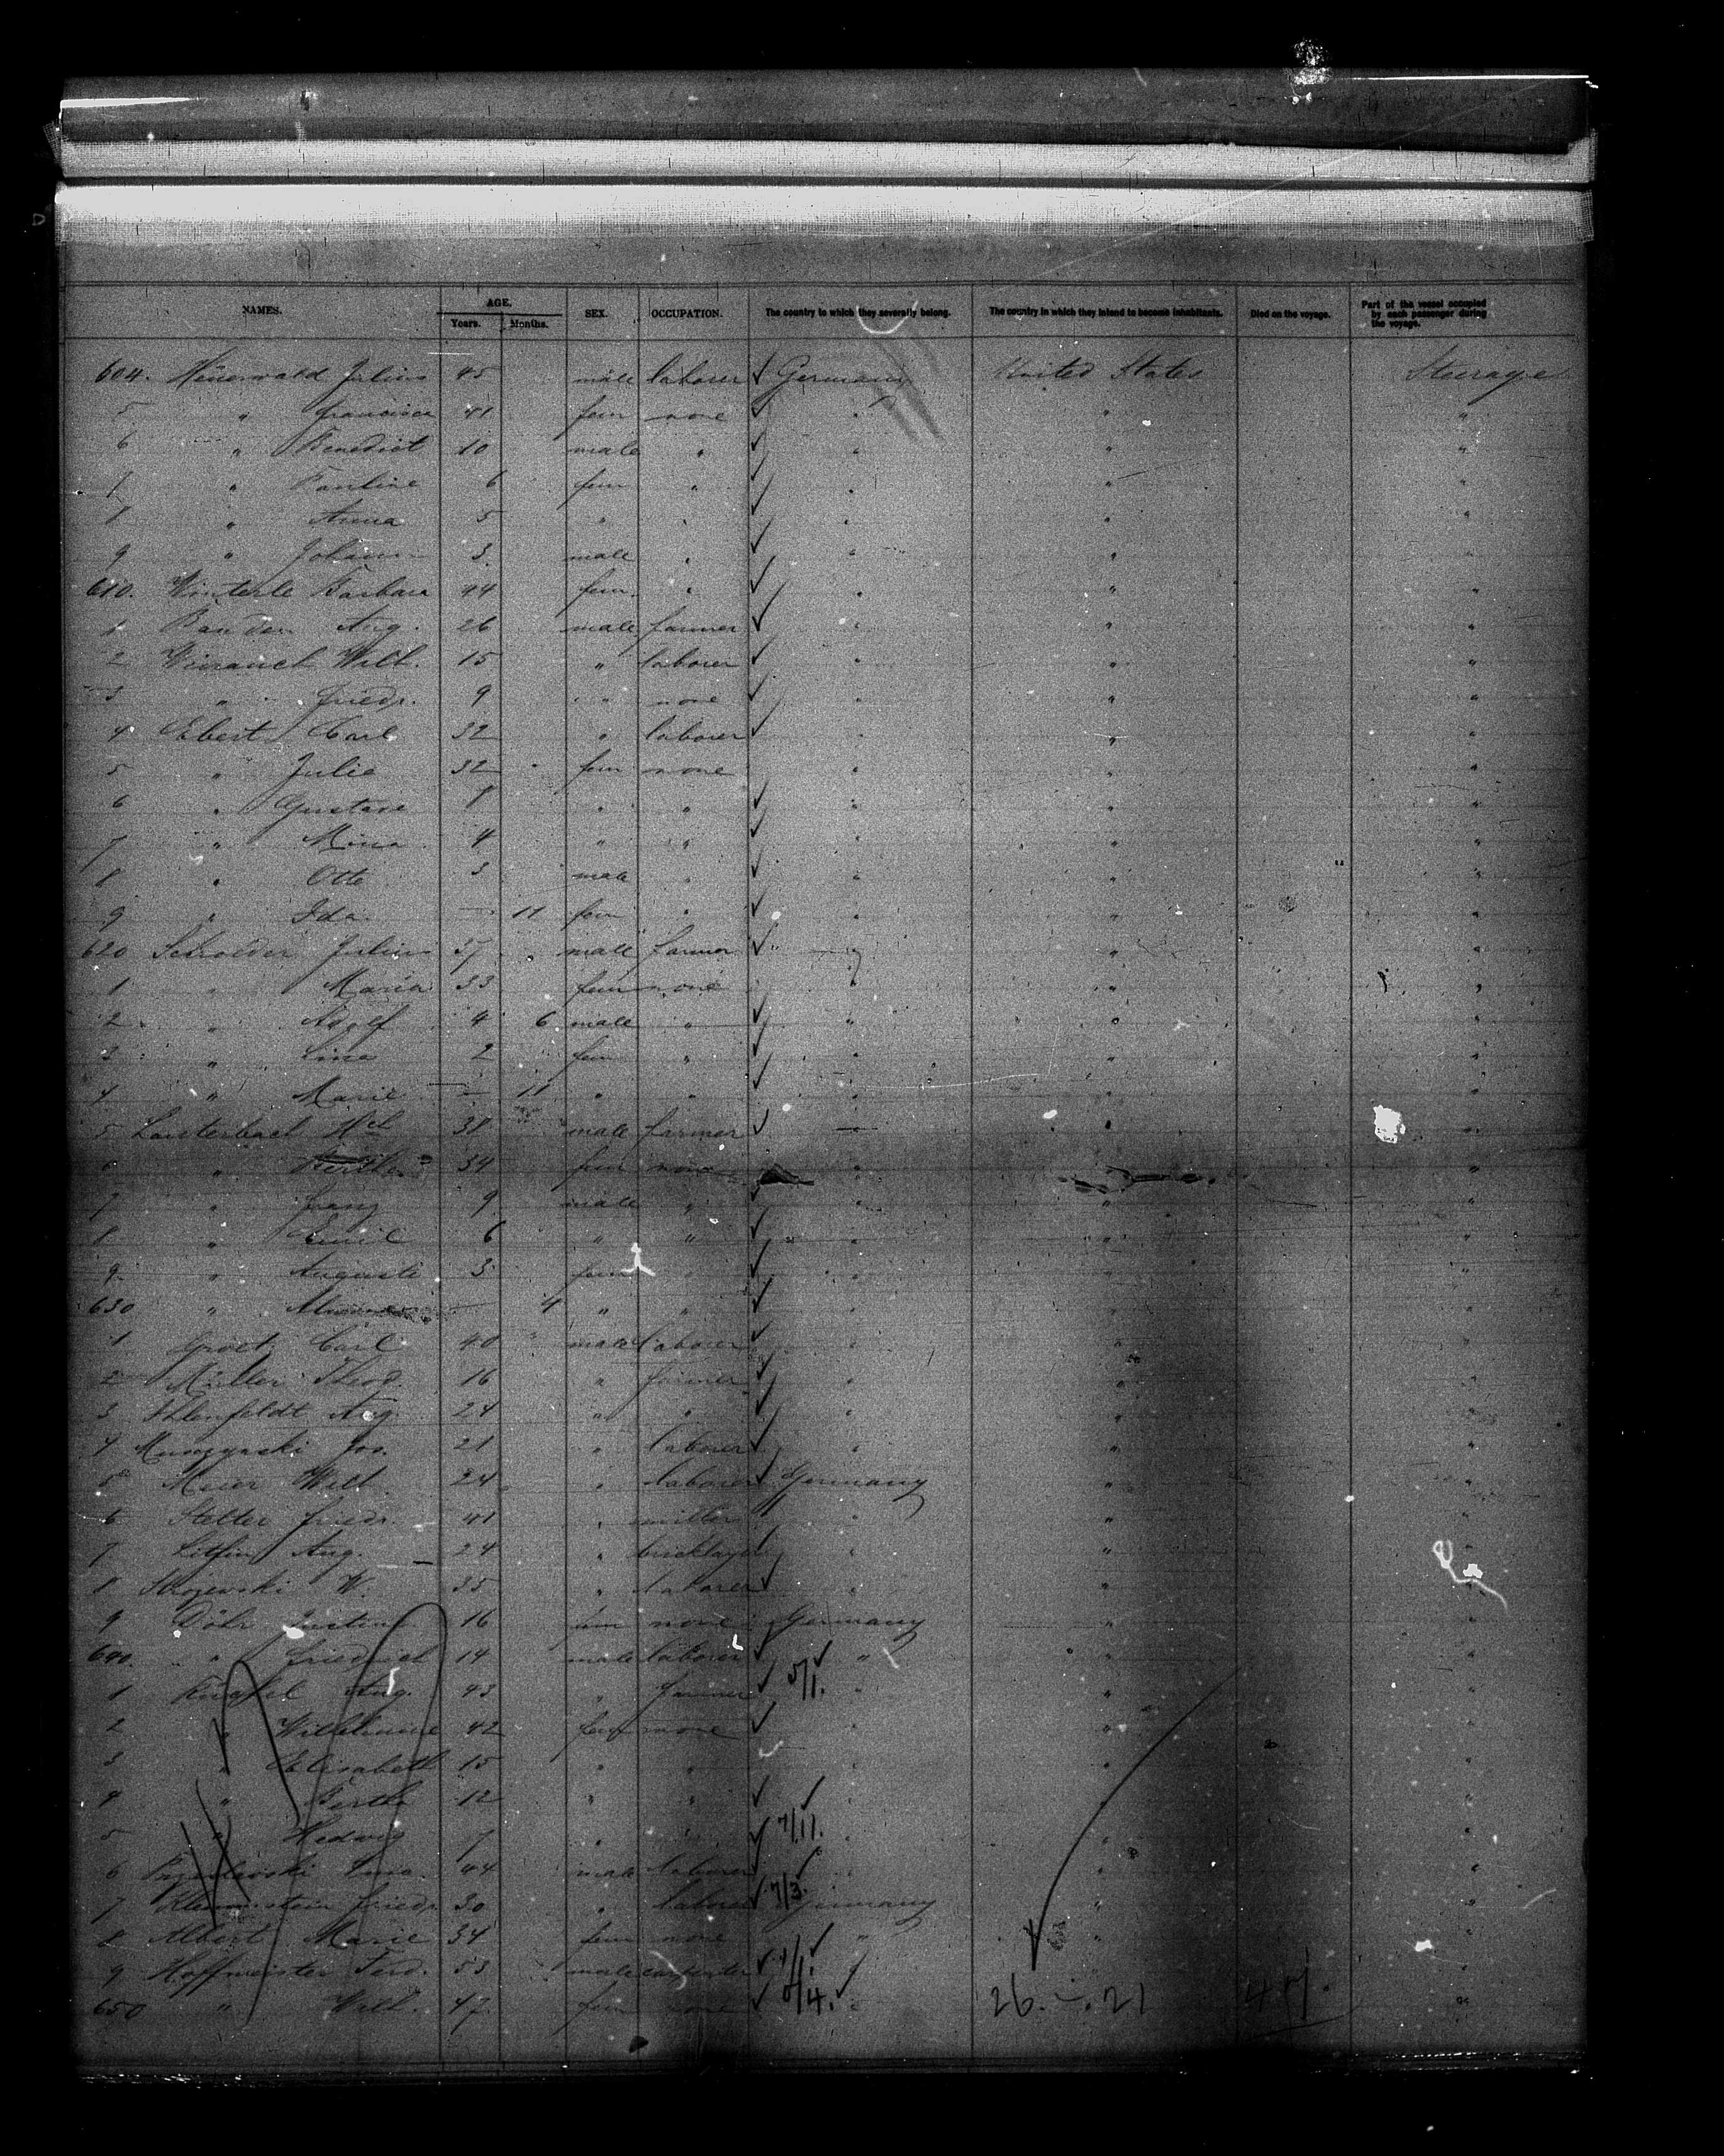 NAMES. AGE. SEX. OCCUPATION. The country to which they severally belong. The country in which they intend to become inhabitants. Died on the voyage. Part of the vessel occupied by each passenger during the voyage.
Years. Months.
604. Julius 45 male laborer ✓ Germany United States Steerage
5 " Francisca 41 fem none ✓ " " "
6 " Benedict 10 male " ✓ " " "
7 " Pauline 6 fem " ✓ " " "
8 " Anna 5 " " ✓ " " "
9 " Johann 3 male " ✓ " " "
610. Winterle Barbara 44 fem. " ✓ " " "
1 Bander Aug. 26 male farmer ✓ " " "
2 Wilh. 15 " laborer ✓ " " "
3 " Friedr. 9 " none ✓ " " "
4 Ebert Carl 32 " laborer ✓ " " "
5 " Julie 32 fem none " " "
6 " Gustave 8 " " ✓ " " "
7 " Mina 4 " " ✓ " " "
8 " Otto 3 male " ✓ " " "
9 " Ida — 11 fem " ✓ " " "
620 Julius 37 male farmer ✓ " " "
1 " Maria 33 fem none " " "
2 " Adolf 4 6 male " ✓ " " "
3 " Lina 2 fem " ✓ " " "
4 " Marie — 11 " " ✓ " " "
5 Lauterbach Hch 38 male farmer ✓ " " "
6 " Bertha 34 fem none " " "
7 " Franz 9 male " ✓ " " "
8 " Emil 6 " " ✓ " " "
9 " Auguste 3 fem " ✓ " " "
630 " — 4 " " ✓ " " "
1 Carl 40 male laborer ✓ " " "
2 Müller Theod. 16 " farmer ✓ " " "
3 Ihlenfeldt Aug. 24 " " ✓ " " "
4 Muszynski Jos. 21 " laborer ✓ " " "
5 Meier Wilh. 24 " laborer ✓ Germany " "
6 Stelter Friedr. 41 " miller " " "
7 Litfin Aug. 24 " bricklayer " " "
8 W. 35 " laborer ✓ " " "
9 Döhr 16 fem none Germany " "
640. " Friedrich 14 male laborer ✓ " " "
1 Aug. 43 " farmer ✓ 5/1. " " "
2 " Wilhelmine 42 fem none ✓ " " "
3 " Elisabeth 15 " " ✓ " " "
4 " Bertha 12 " " ✓ " " "
5 " Hedwig 7 " " ✓ 7/11. " " "
6 44 male laborer ✓ " " "
7 Friedr. 30 " laborer ✓ 7/3. Germany " "
8 Albert Marie 34 fem none " " "
9 Hoffmeister Ferd. 53 male carpenter ✓ " " "
650 " Wilh. 47 fem none ✓ /4. ✓ 26. – 21 47. "